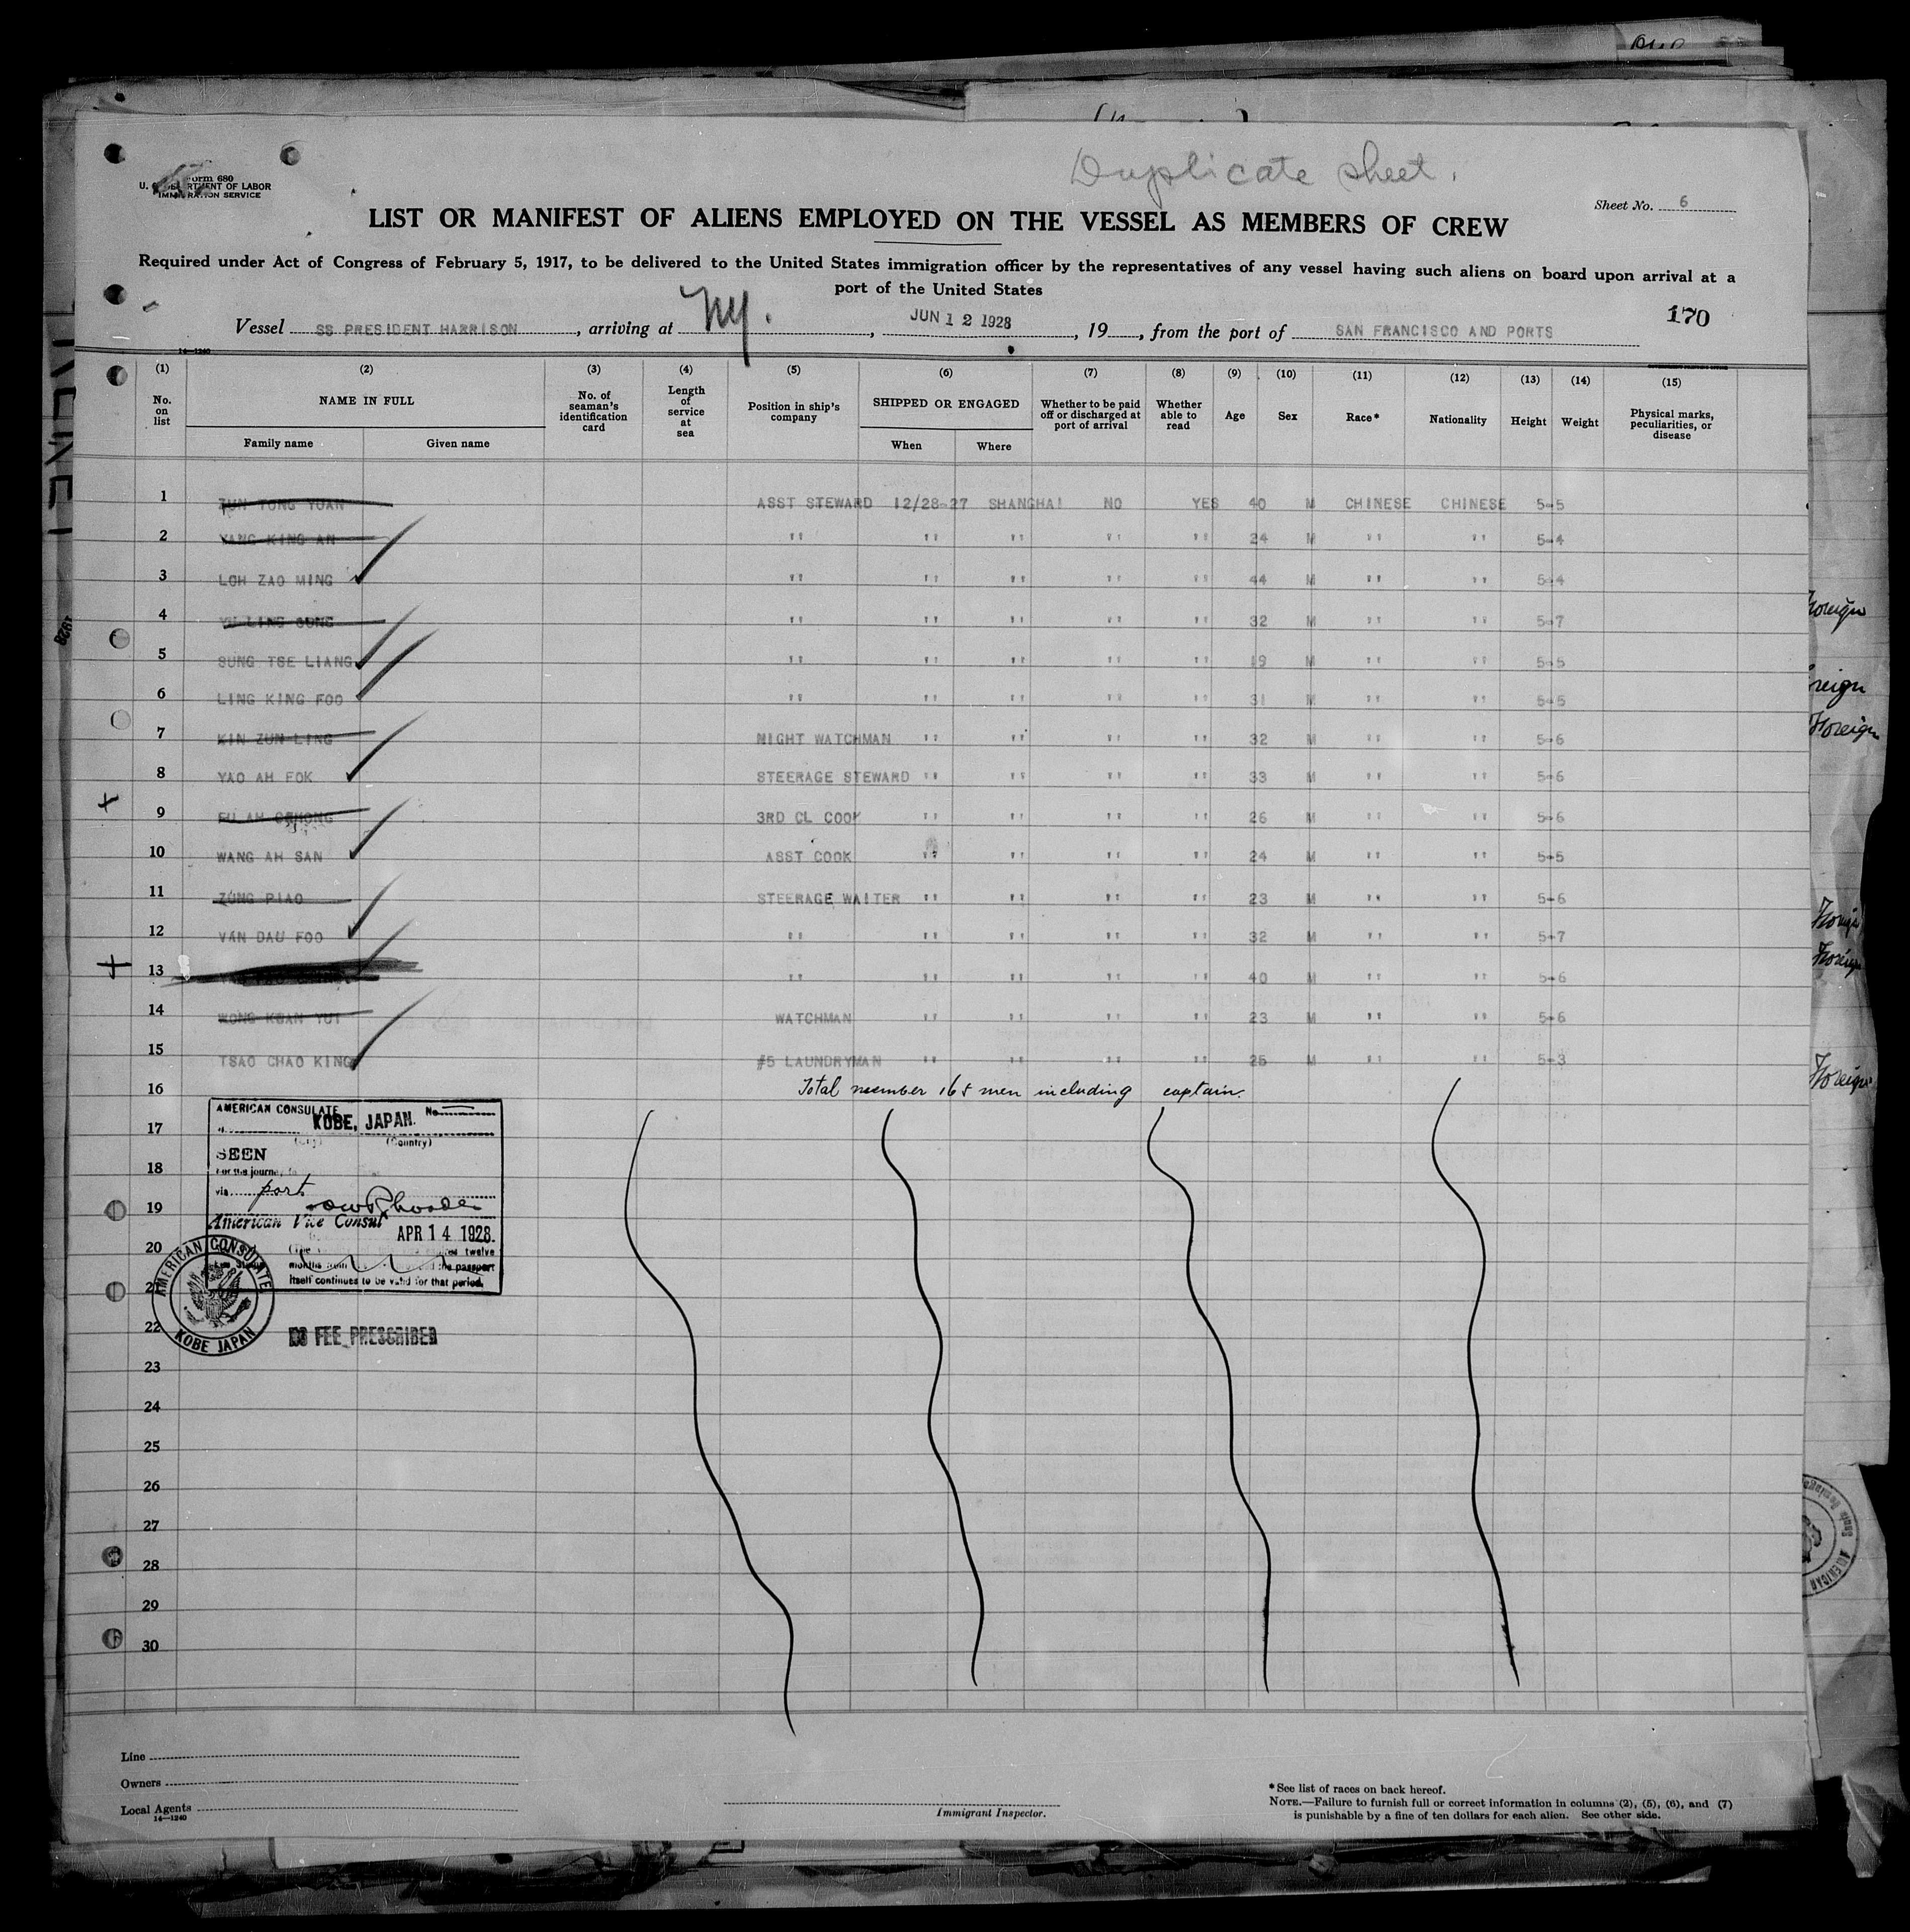 Duplicate sheet.
Form 680
U. S. DEPARTMENT OF LABOR
IMMIGRATION SERVICE
Sheet No. 6
LIST OR MANIFEST OF ALIENS EMPLOYED ON THE VESSEL AS MEMBERS OF CREW
Required under Act of Congress of February 5, 1917, to be delivered to the United States immigration officer by the representatives of any vessel having such aliens on board upon arrival at a
port of the United States
170
Vessel SS PRESIDENT HARRISON, arriving at NY., JUN 12 1928, 19, from the port of SAN FRANCISCO AND PORTS
14—1240
(1) (2) (3) (4) (5) (6) (7) (8) (9) (10) (11) (12) (13) (14) (15)
No. on list NAME IN FULL No. of seaman's identification card Length of service at sea Position in ship's company SHIPPED OR ENGAGED Whether to be paid off or discharged at port of arrival Whether able to read Age Sex Race* Nationality Height Weight Physical marks, peculiarities, or disease
Family name Given name When Where
1 ZUN TONG YUAN ASST STEWARD 12/28-27 SHANGHAI NO YES 40 M CHINESE CHINESE 5-5
2 YANG KING AN " " " " " 24 M " " 5-4
3 LOH ZAO MING " " " " " 44 M " " 5-4
4 YU LING GONG " " " " " 32 M " " 5-7
5 SUNG TSE LIANG " " " " " 19 M " " 5-5
6 LING KING FOO " " " " " 31 M " " 5-5
7 KIN ZUN LING NIGHT WATCHMAN " " " " 32 M " " 5-6
8 YAO AH FOK STEERAGE STEWARD " " " " 33 M " " 5-6
9 AH 3RD CL COOK " " " " 26 M " " 5-6
10 WANG AH SAN ASST COOK " " " " 24 M " " 5-5
11 ZUNG PIAO STEERAGE WAITER " " " " 23 M " " 5-6
12 VAN DAU FOO " " " " " 32 M " " 5-7
13 " " " " " 40 M " " 5-6
14 WONG KUAN YUT WATCHMAN " " " " 23 M " " 5-6
15 TSAO CHAO KING #5 LAUNDRYMAN " " " " 25 M " " 5-3
16 Total number 165 men including captain.
17
18
19
20
21
22
23
24
25
26
27
28
29
30
AMERICAN CONSULATE No.
KOBE, JAPAN.
(Country)
SEEN
For the journey
via port
American Vice Consul
APR 14 1928.
twelve
months from the passport
itself continues to be valid for that period.
AMERICAN CONSULATE
KOBE JAPAN
NO FEE PRESCRIBED
Foreign
Foreign
Foreign
Foreign
Foreign
Line
Owners
Local Agents
14—1240
Immigrant Inspector.
*See list of races on back hereof.
NOTE.—Failure to furnish full or correct information in columns (2), (5), (6), and (7)
is punishable by a fine of ten dollars for each alien. See other side.